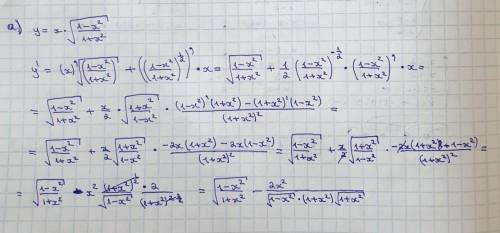 а) y = x · √((1-x²)/(1+x²))
y' = (x)' √((1-x²)/(1+x²)) + (((1-x²)/(1+x²))^(1/2))' · x = √((1-x²)/(1+x²)) + 1/2 ((1-x²)/(1+x²))^(-1/2) · ((1-x²)/(1+x²))' · x =
= √((1-x²)/(1+x²)) + x/2 · √((1+x²)/(1-x²)) · ((1-x²)'(1+x²) - (1+x²)'(1-x²))/(1+x²)² =
= √((1-x²)/(1+x²)) + x/2 √((1+x²)/(1-x²)) · (-2x(1+x²) - 2x(1-x²))/(1+x²)² = √((1-x²)/(1+x²)) + x/2 √((1+x²)/(1-x²)) · (-2x(1+x²+1-x²))/(1+x²)² =
= √((1-x²)/(1+x²)) - x² (1+x²)^(1/2)/√(1-x²) · 2/(1+x²)^(2-1/2) = √((1-x²)/(1+x²)) - 2x²/(√(1-x²) · (1+x²) · √(1+x²))